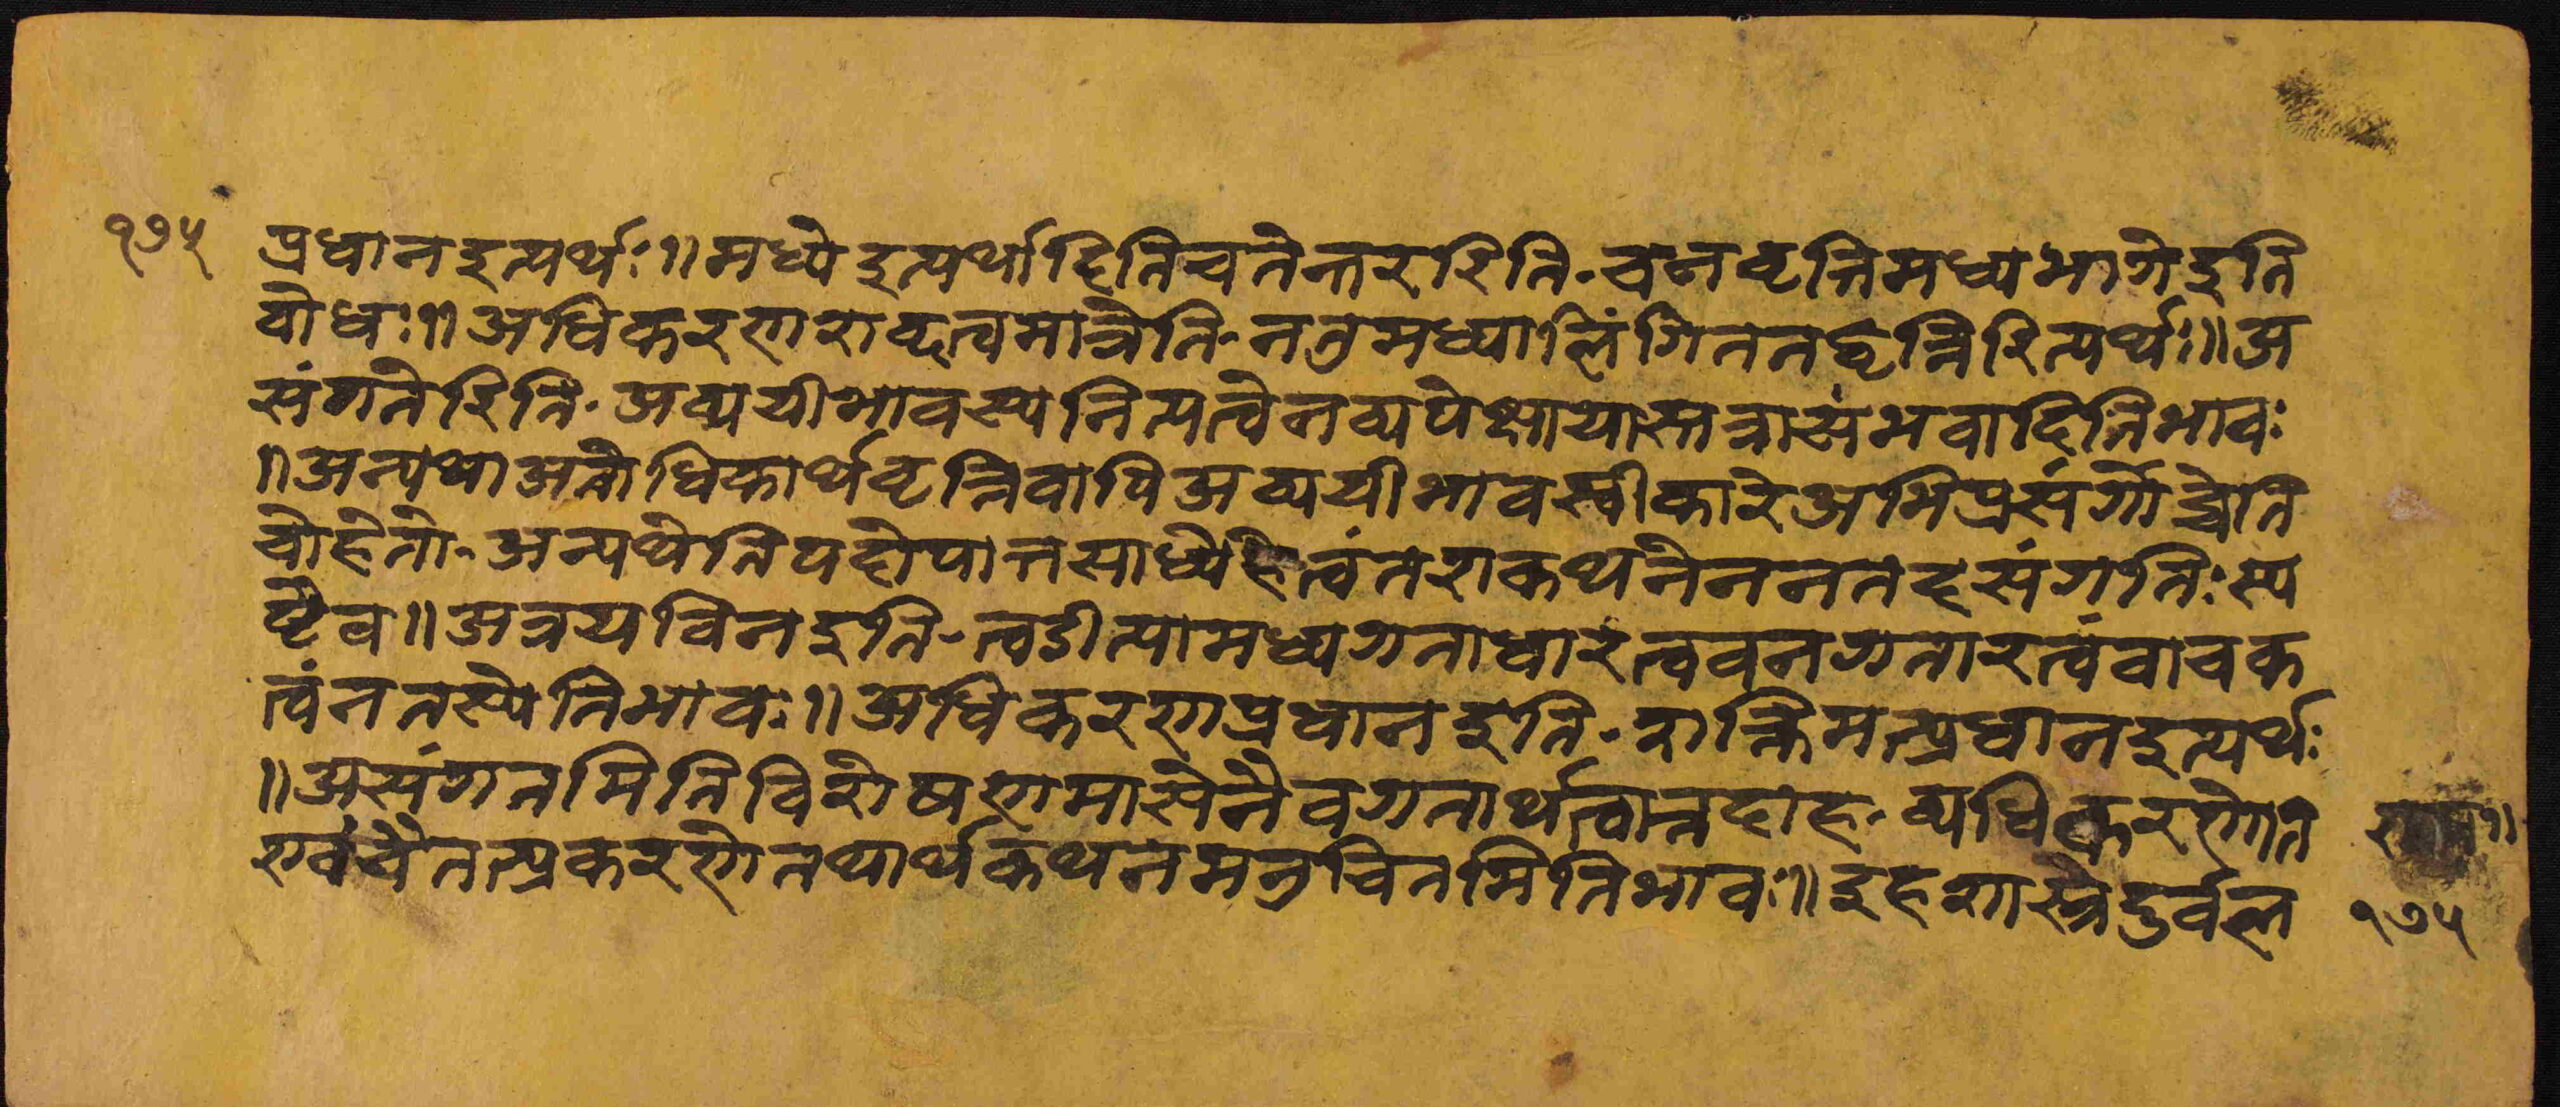 १७५ प्रधानइत्यर्थः॥मध्येइत्यर्थादितिचतेन्तररिति-वनवृत्तिमध्यभागेइति
बोधः॥अधिकरणशब्दत्वमात्रेति-नतुमध्यालिंगिततद्वृत्तिरित्यर्थः॥अ
संगतेरिति-अव्ययीभावस्यनित्यत्वेनव्यपेक्षायास्तत्रासंभवादितिभावः
॥अन्यथाअतोधिकार्थवृत्तिवापिअव्ययीभावस्वीकारेअभिप्रसंगोद्वेति
वोहेतो-अन्यथेतिपदोपात्तसाध्येहेत्वंतराकथनेननतदसंगतिःस्प
ष्टैव॥अत्रयविनइति-त्वडीत्यामध्यगताधारंत्ववनगतारत्वंवाचक
त्वंनतस्येतिभावः॥अधिकरणप्रधानइति-शक्तिमत्प्रधानइत्यर्थः
॥असंगतमितिविशेषणमासेनैवगतार्थत्वात्तदाह-व्यधिकरणेति राम॥
एवंचैतत्प्रकरणेतथार्थकथनमनुचितमितिभावः॥इहशास्त्रेदुर्वल १७५